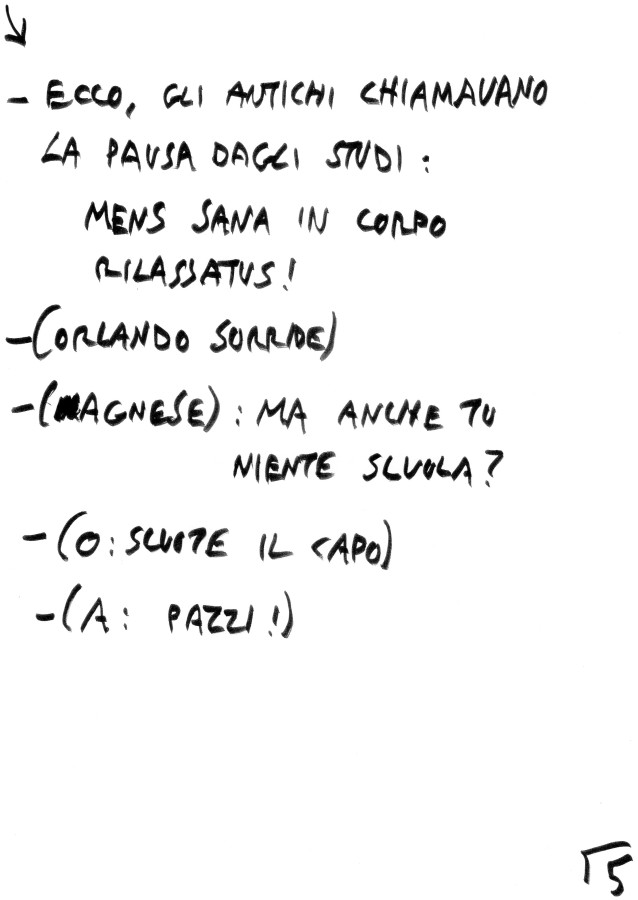 - ECCO, GLI ANTICHI CHIAMAVANO
LA PAUSA DAGLI STUDI:
MENS SANA IN CORPO
RILASSATUS!
-(ORLANDO SORRIDE)
-(AGNESE): MA ANCHE TU
NIENTE SCUOLA?
-(O: SCUOTE IL CAPO)
-(A: PAZZI!)
5